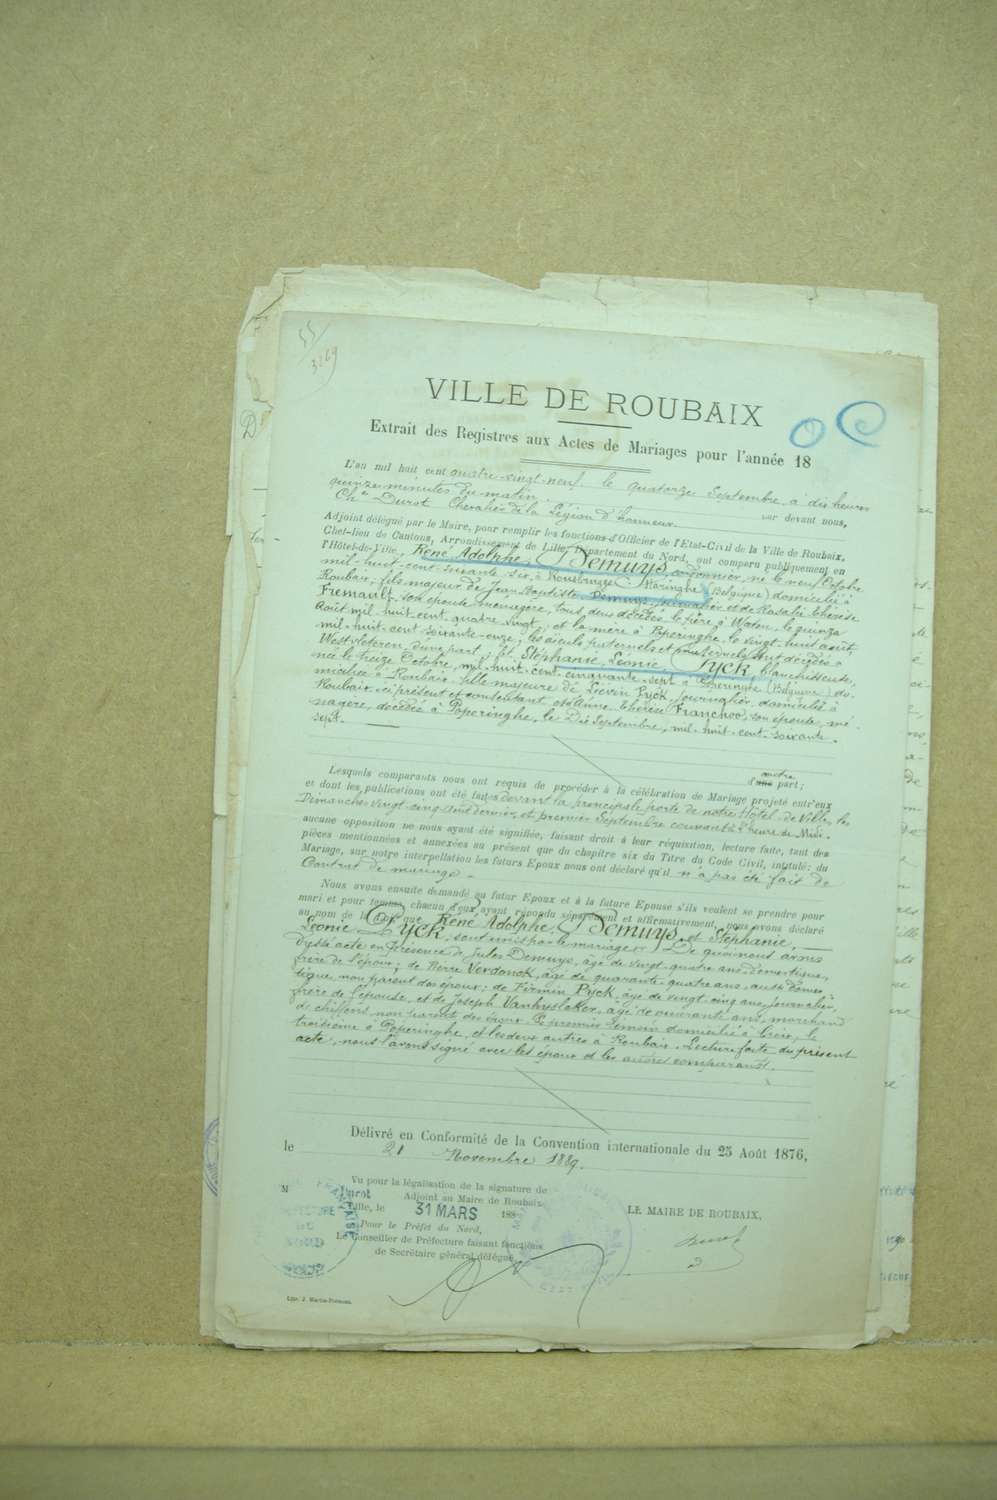 VILLE DE ROUBAIX
Extrait des Registres aux Actes de Mariages pour l'année 18
L'an mil huit cent quatre-vingt-neuf le quatorze Septembre à dix heures
quinze minutes du matin.
Ch.es Durot Chevalier de la Légion d'honneur par devant nous,
Adjoint délégué par le Maire, pour remplir les fonctions d'Officier de l'Etat-Civil de la Ville de Roubaix,
Chef-lieu de Cantons, Arrondissement de Lille, Département du Nord, ont comparu publiquement en
l'Hôtel-de-Ville, René Adolphe, Demuys, cordonnier, né le neuf Octobre
mil-huit-cent-soixante-six, à Rousbrugge-Haringhe (Belgique) domicilié à
Roubaix, fils majeur de Jean Baptiste Demuys, journalier et de Rosalie Thérèse
Fremault, son épouse ménagère, tous deux décédés, le père à Watou, le quinze
Août mil-huit-cent-quatre-vingt, et la mère à Poperinghe, le vingt-huit août,
mil-huit-cent-soixante-onze; les aïeuls paternels et maternels sont décédés à
Westvleteren, d'une part; Et Stéphanie, Léonie, Pyck, blanchisseuse,
née le treize Octobre, mil-huit-cent-cinquante-sept à Poperinghe (Belgique) do-
miciliée à Roubaix fille majeure de Liévin Pyck, journalier, domicilié à
Roubaix, ici présent et consentant et d'Anne Thérèse Franchoo, son épouse, mé-
nagère, décédée à Poperinghe, le Dix Septembre, mil-huit-cent-soixante-
sept.
d'autre part;
Lesquels comparants nous ont requis de procéder à la célébration de Mariage projeté entr'eux
et dont les publications ont été faites devant la principale porte de notre Hôtel-de-Ville, les
Dimanches vingt-cinq Août dernier, et premier Septembre courant à l'heure de Midi.
aucune opposition ne nous ayant été signifiée, faisant droit à leur réquisition, lecture faite, tant des
pièces mentionnées et annexées au présent que du chapitre six du Titre du Code Civil, intitulé: du
Mariage, sur notre interpellation les futurs Epoux nous ont déclaré qu'il n'a pas été fait de
Contrat de mariage.
Nous avons ensuite demandé au futur Epoux et à la future Epouse s'ils veulent se prendre pour
mari et pour femme, chacun d'eux ayant répondu séparément et affirmativement, nous avons déclaré
au nom de la Loi que René Adolphe, Demuys, et Stéphanie,
Léonie Pyck, sont unis par le mariage. De quoi nous avons
dressé acte en présence de Jules Demuys, âgé de vingt-quatre ans, domestique,
frère de l'époux; de Pierre Verdonck, âgé de quarante-quatre ans, aussi domes-
tique, non parent des époux; de Firmin Pyck, âgé de vingt-cinq ans, journalier,
frère de l'épouse, et de Joseph Vanhyslaker, âgé de quarante ans, marchand
de chiffons, non parent des époux. Le premier témoin domicilié à Croix, le
troisième à Poperinghe, et les deux autres à Roubaix. Lecture faite du présent
acte, nous l'avons signé avec les époux et les autres comparants.
Délivré en Conformité de la Convention internationale du 25 Août 1876,
le 21 Novembre 1889.
Vu pour la légalisation de la signature de
M Durot Adjoint au Maire de Roubaix.
Lille, le 31 MARS 188
Pour le Préfet du Nord,
Le Conseiller de Préfecture faisant fonctions
de Secrétaire général délégué
LE MAIRE DE ROUBAIX,
Durot